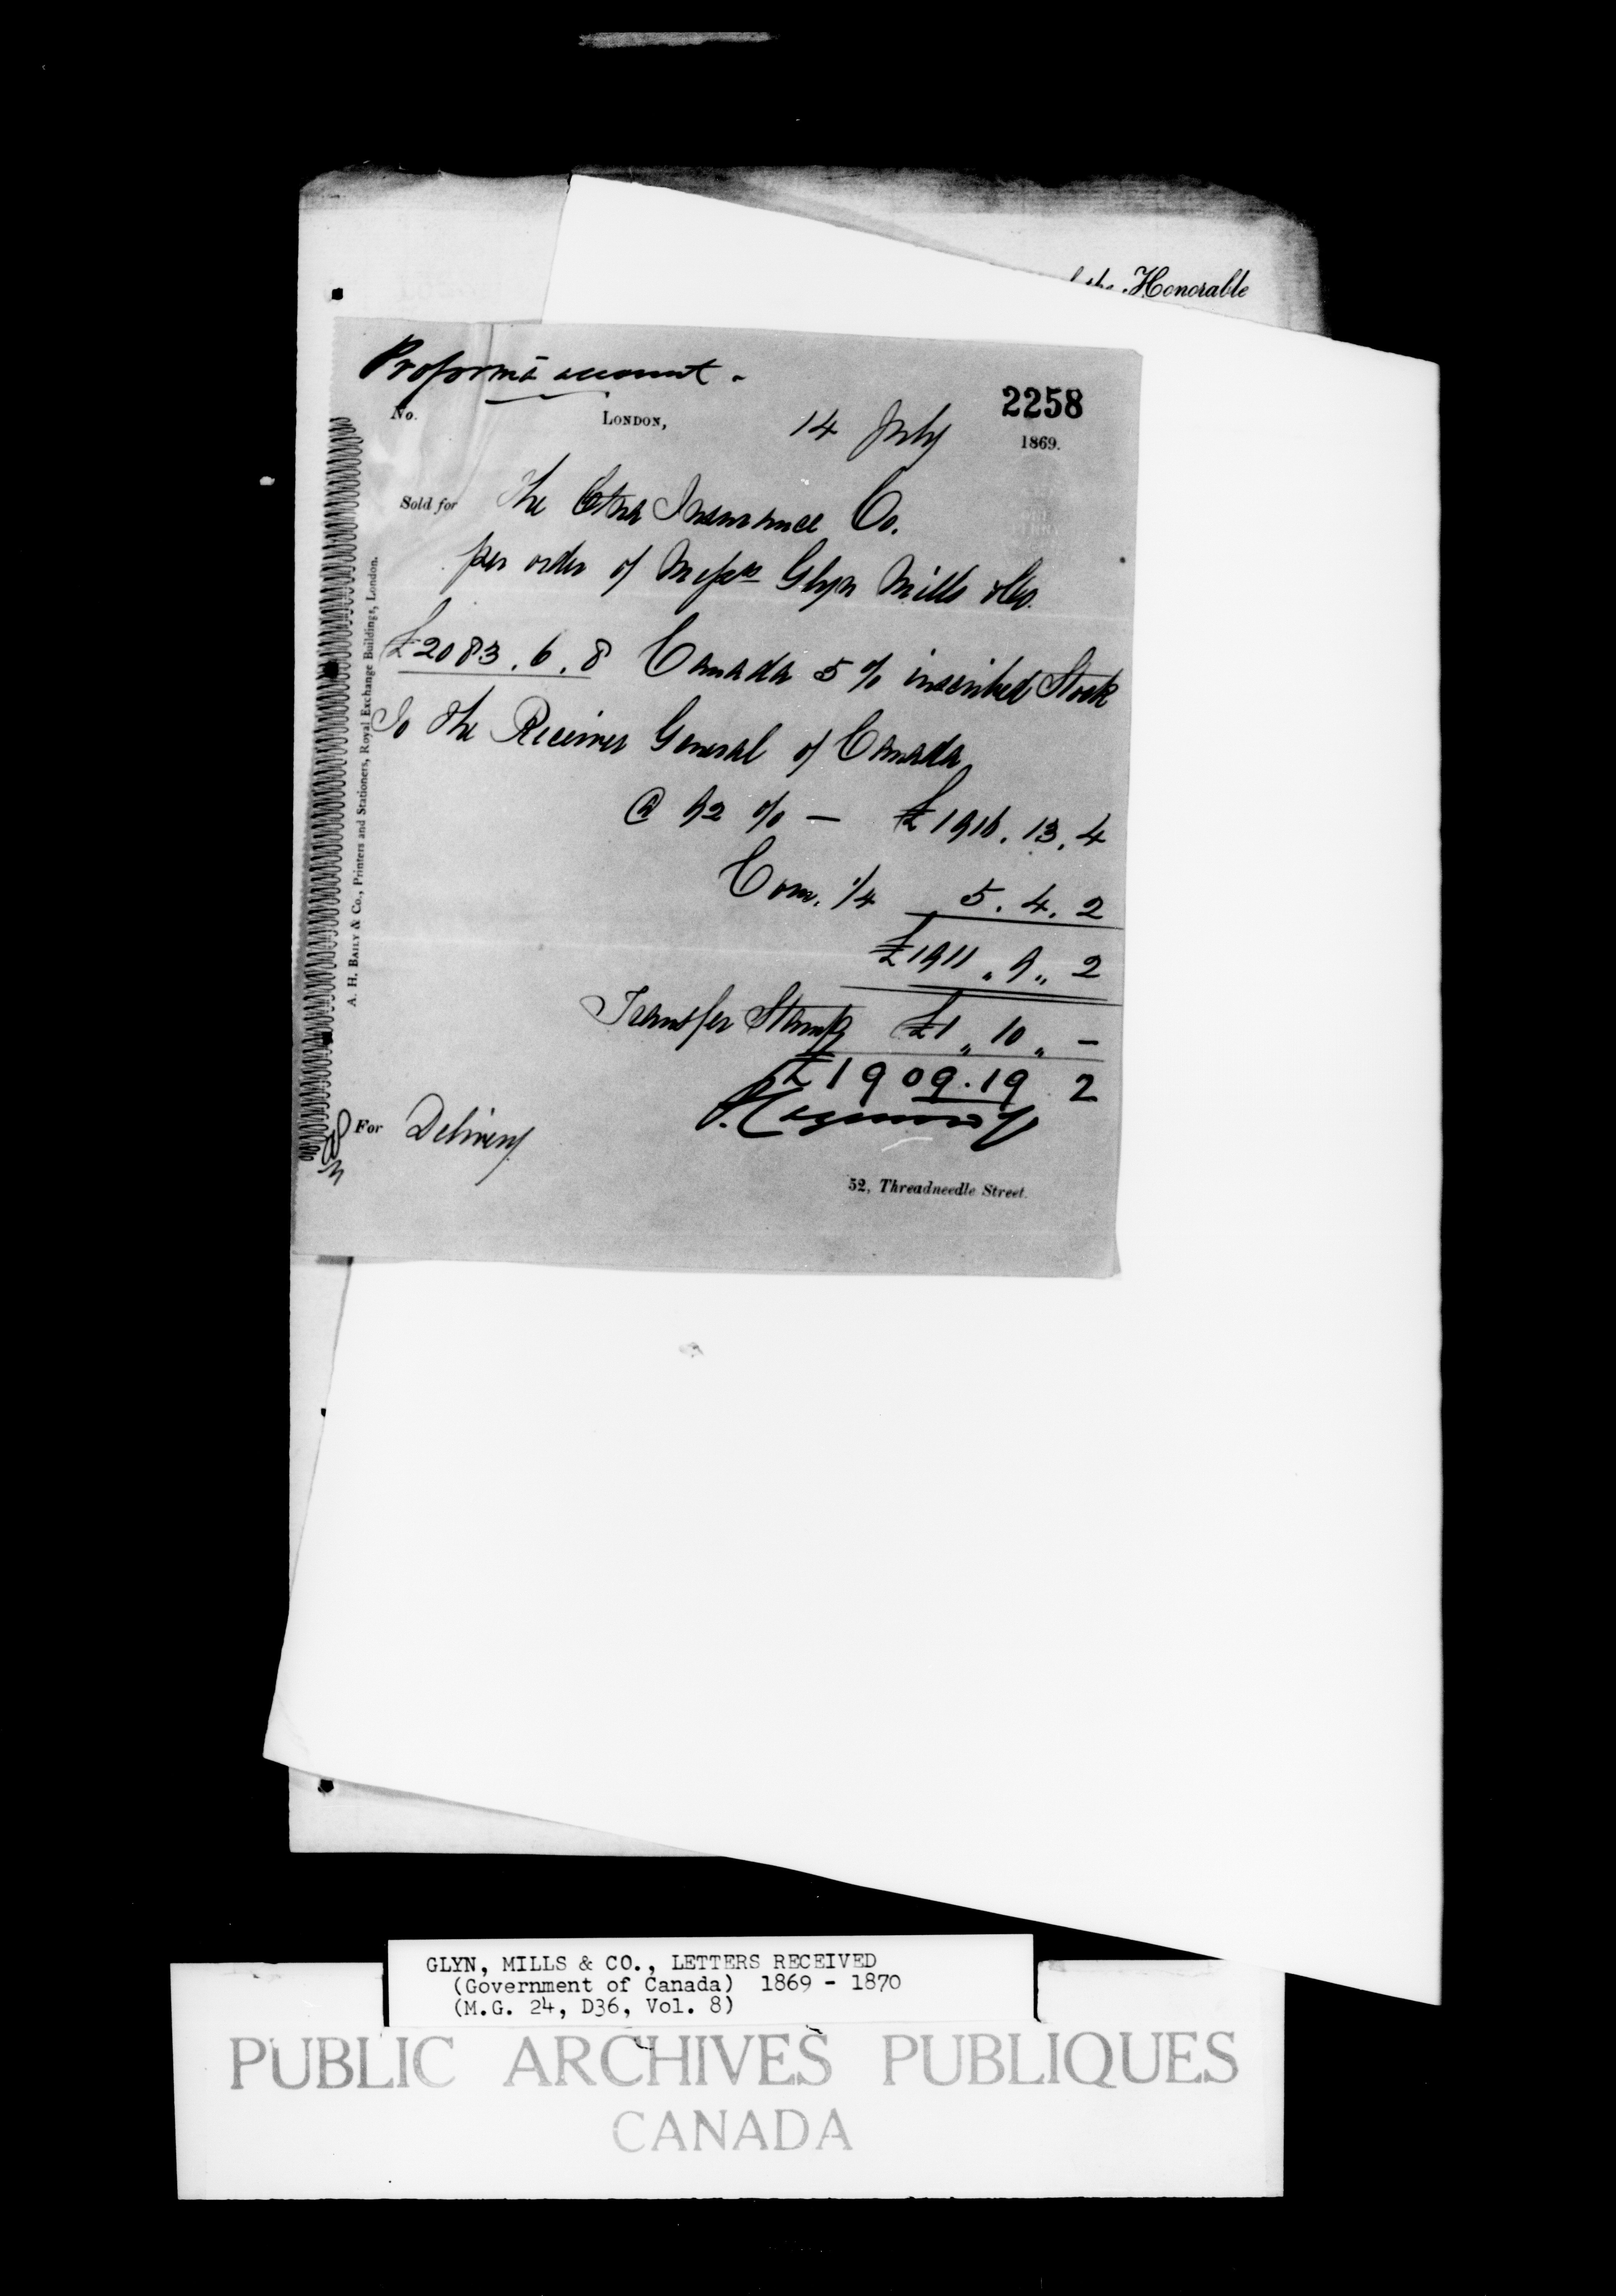 the Honorable
Proforma account.
2258
No. LONDON, 14 July 1869.
Sold for The Etna Insurance Co.
per order of Messrs Glyn Mills & Co.
£2083.6.8 Canada 5% inscribed Stock
To The Receiver General of Canada
@ 92 % — £1916.13.4
Com. 1/4 5.4.2
£1911 " 9 " 2
Transfer Stamp £1 " 10 " —
£1909.19 2
For Delivery
52, Threadneedle Street.
A. H. BAILY & Co., Printers and Stationers, Royal Exchange Buildings, London.
GLYN, MILLS & CO., LETTERS RECEIVED
(Government of Canada) 1869 - 1870
(M.G. 24, D36, Vol. 8)
PUBLIC ARCHIVES PUBLIQUES
CANADA